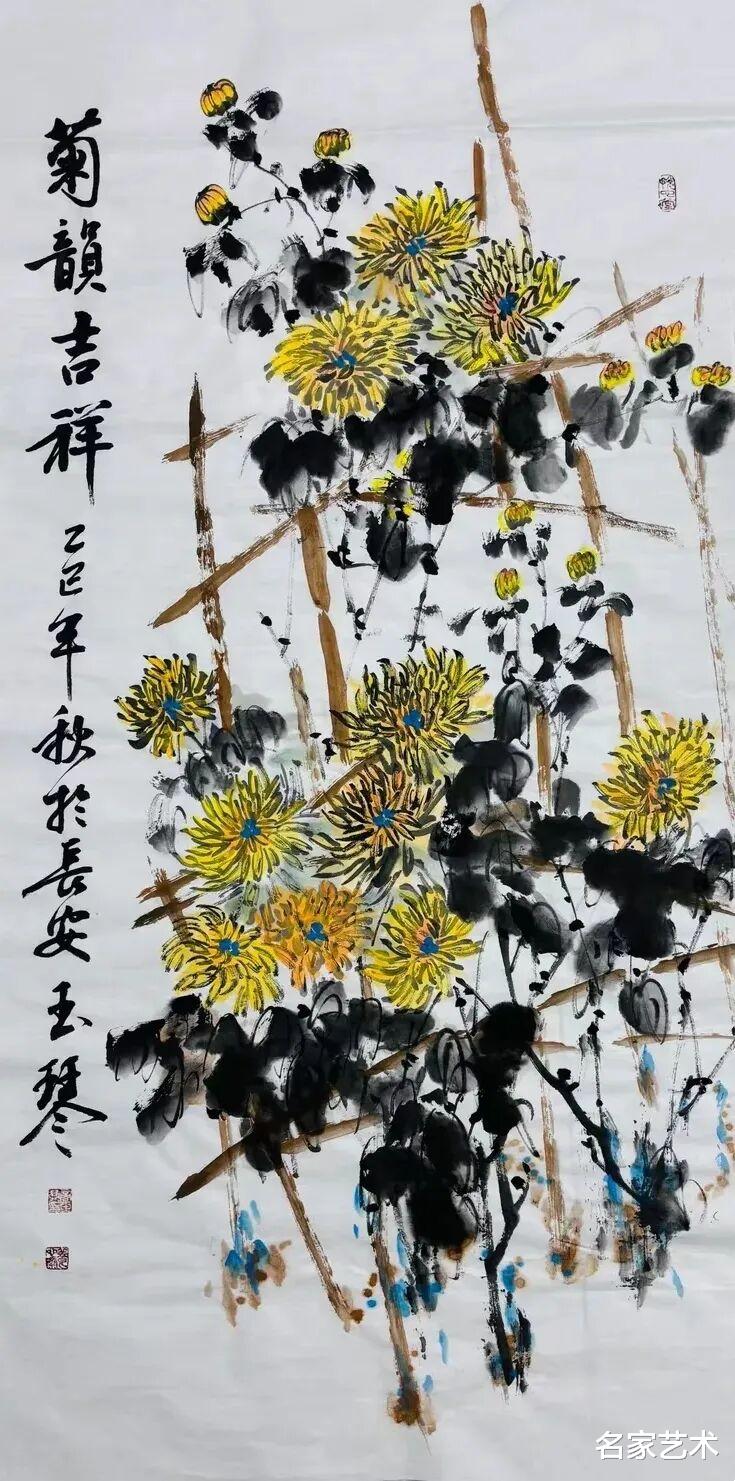 菊韻吉祥
乙巳年秋於長安玉琴
名家艺术